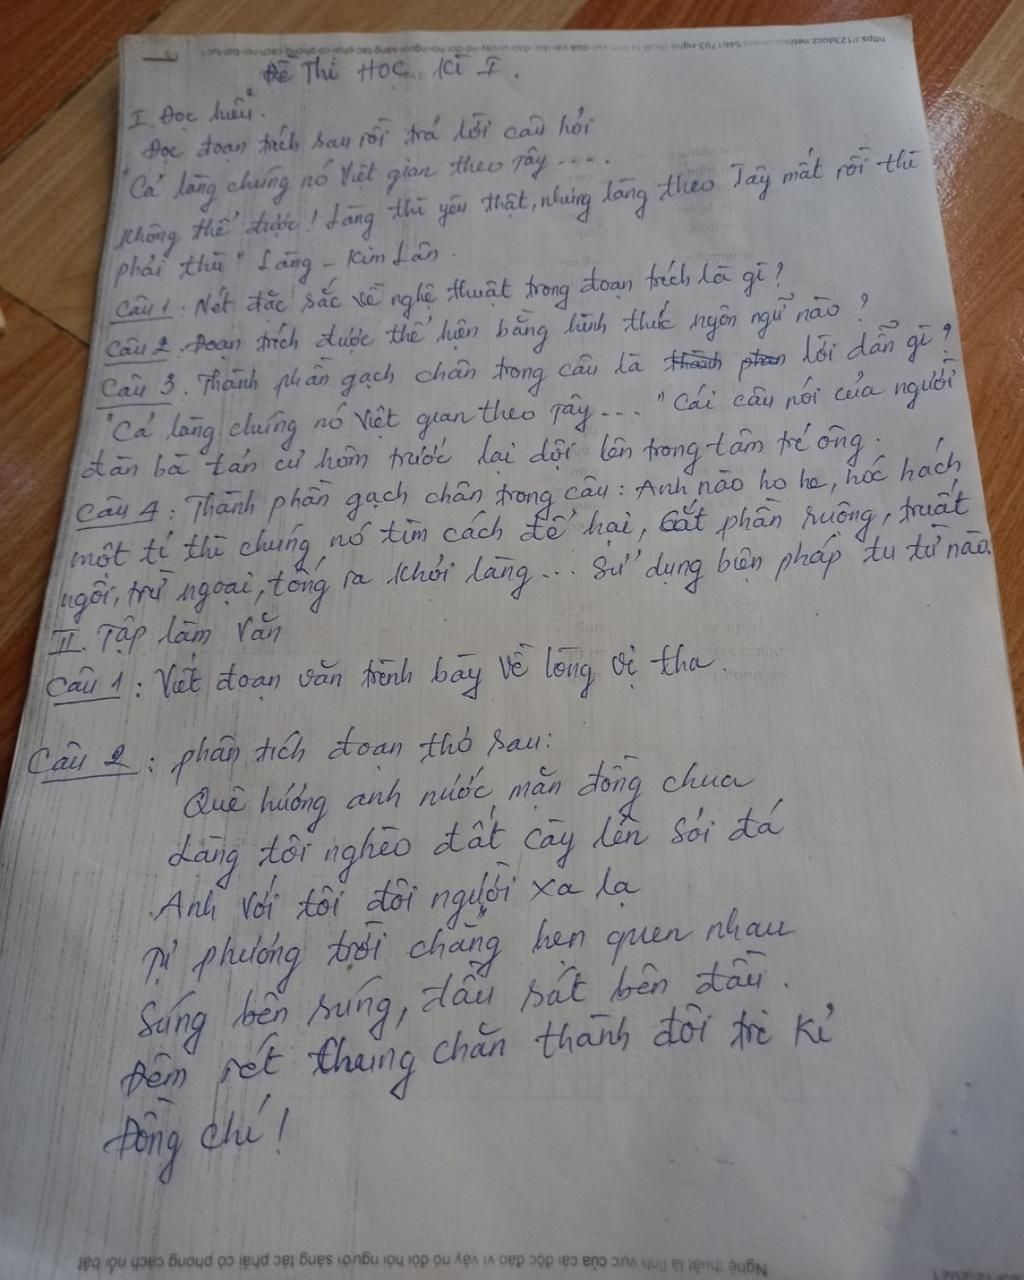 Đề Thi Học Kì I.
I. Đọc hiểu.
Đọc đoạn trích sau rồi trả lời câu hỏi
"Cả làng chúng nó Việt gian theo Tây.....
không thể được! Làng thì yêu thật, nhưng làng theo Tây mất rồi thì
phải thù" Làng - Kim Lân.
Câu 1: Nét đặc sắc về nghệ thuật trong đoạn trích là gì?
Câu 2. Đoạn trích được thể hiện bằng hình thức ngôn ngữ nào?
Câu 3. Thành phần gạch chân trong câu là thành phần lời dẫn gì?
"Cả làng chúng nó Việt gian theo Tây..." Cái câu nói của người
đàn bà tản cư hôm trước lại dội lên trong tâm trí ông.
Câu 4: Thành phần gạch chân trong câu: Anh nào ho he, hóc hách
một tí thì chúng nó tìm cách để hại, cắt phần ruộng, truất
ngôi, trừ ngoại, tống ra khỏi làng... Sử dụng biện pháp tu từ nào.
II. Tập làm văn
Câu 1: Viết đoạn văn trình bày về lòng vị tha.
Câu 2: phân tích đoạn thơ sau:
Quê hương anh nước mặn đồng chua
Làng tôi nghèo đất cày lên sỏi đá
Anh với tôi đôi người xa lạ
Tự phương trời chẳng hẹn quen nhau
Súng bên súng, đầu sát bên đầu.
Đêm rét chung chăn thành đôi tri kỉ
Đồng chí!
Nghệ thuật là lĩnh vực của cái độc đáo vì vậy nó đòi hỏi người sáng tác phải có phong cách nổi bật